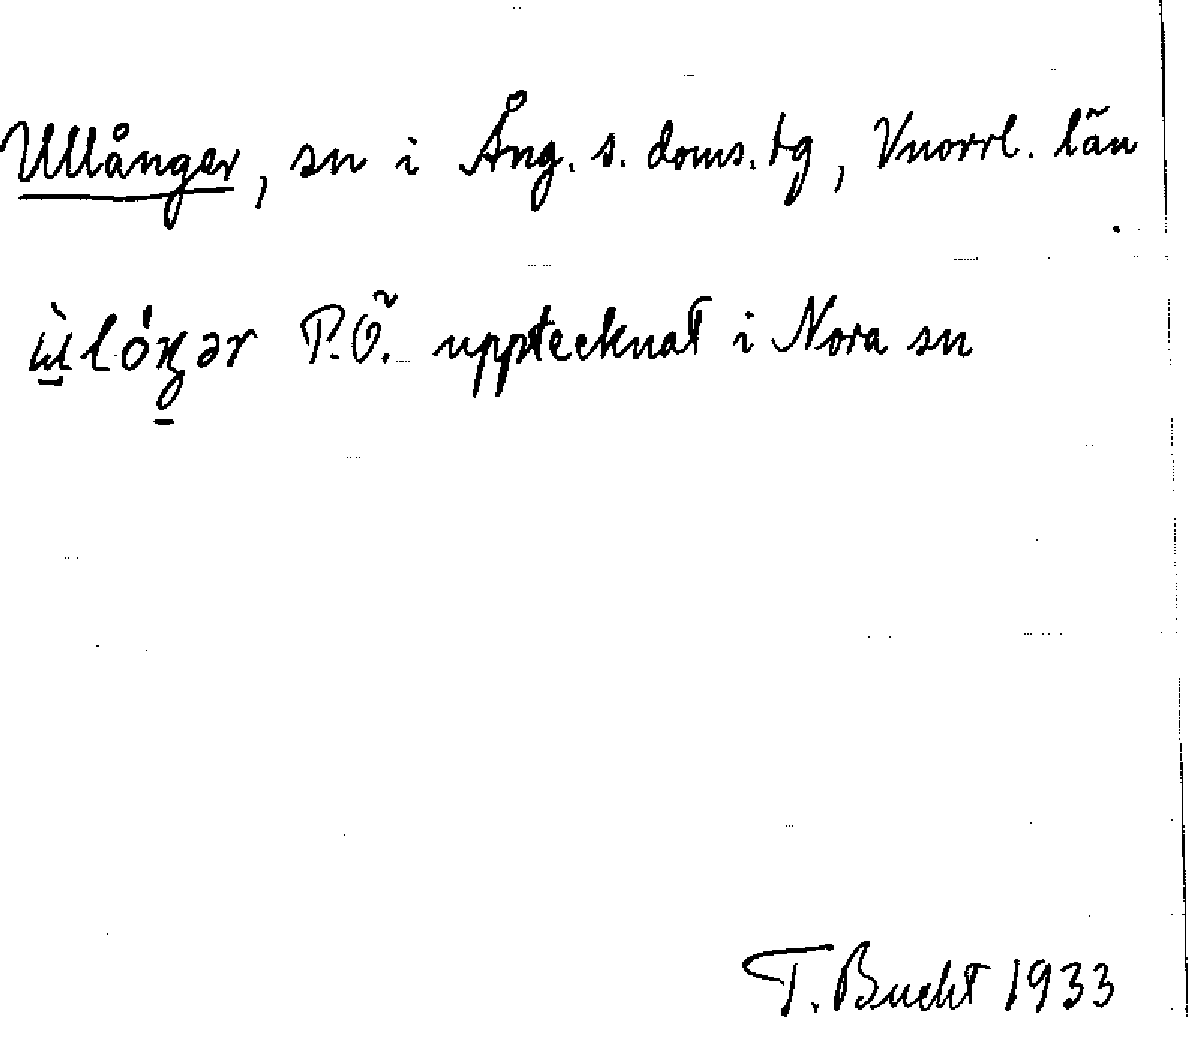 Ullånger, sn i Ång. s. doms. tg, Vnorrl. län
ùlóŋər P.Ö. upptecknat i Nora sn
T. Bucht 1933